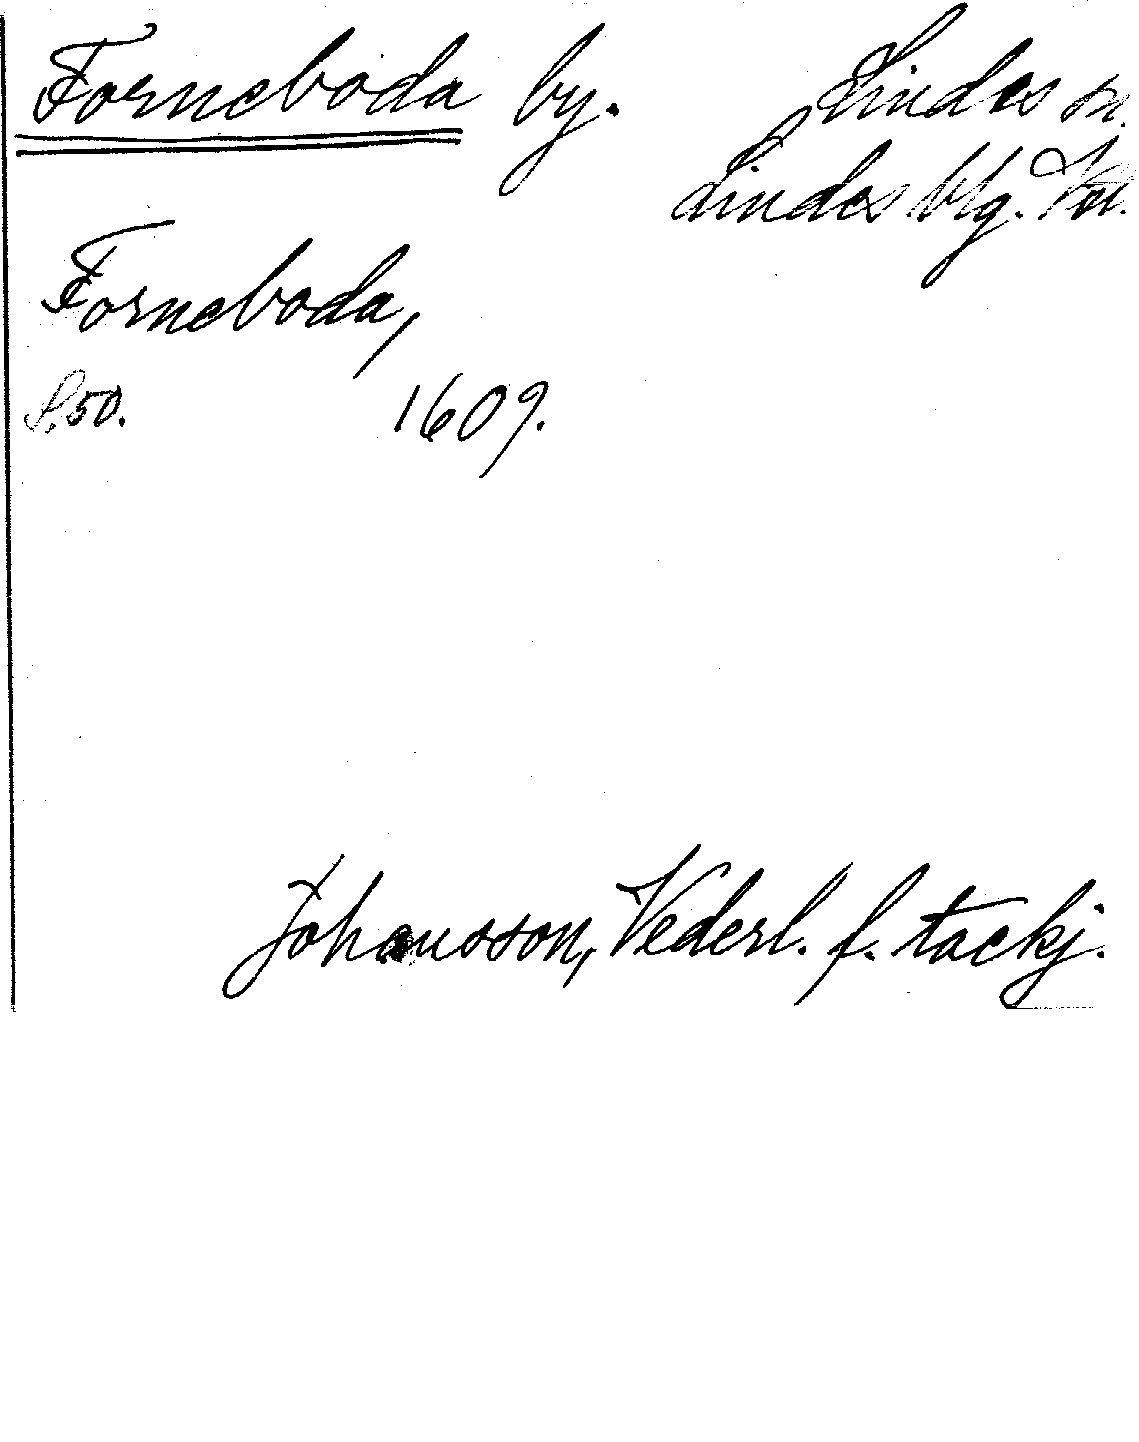 Forneboda by. Lindes sn.
Lindes blg. Vm.
Forneboda,
S. 50. 1609.
Johansson, Vederl. f. tackj.